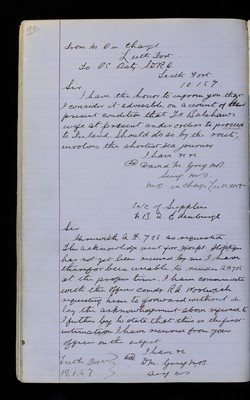 From M. O in Charge
Leith Fort
To O.C. Baty S.D.R.A.
Leith Fort
10.1.57
Sir
I have the honor to inform you that
I consider it advisable on account of the
present condition that Gr Balshaw's
wife at present under orders to proceed
to Ireland should do so by the route
involving the shortest sea journey
I have &c
David M Greig M.B.
Surg M.S.
M.O in charge Leith Fort
of Supplies
N.B. D. Edinburgh
Sir
Herewith A.F. 735 as requested
The acknowledgement for Hospl
has not yet been received by me I have
therefore been unable to render
at the proper time. I have communicated
with the officer comdg R.A. Woolwich
requesting him to forward without de
lay the acknowledgement above referred to
I further beg to state that this is the first
intimation I have received from your
office on the subject
I have &c
DM. Greig M.B.
Surg M.S
Leith Fort
19.1.57